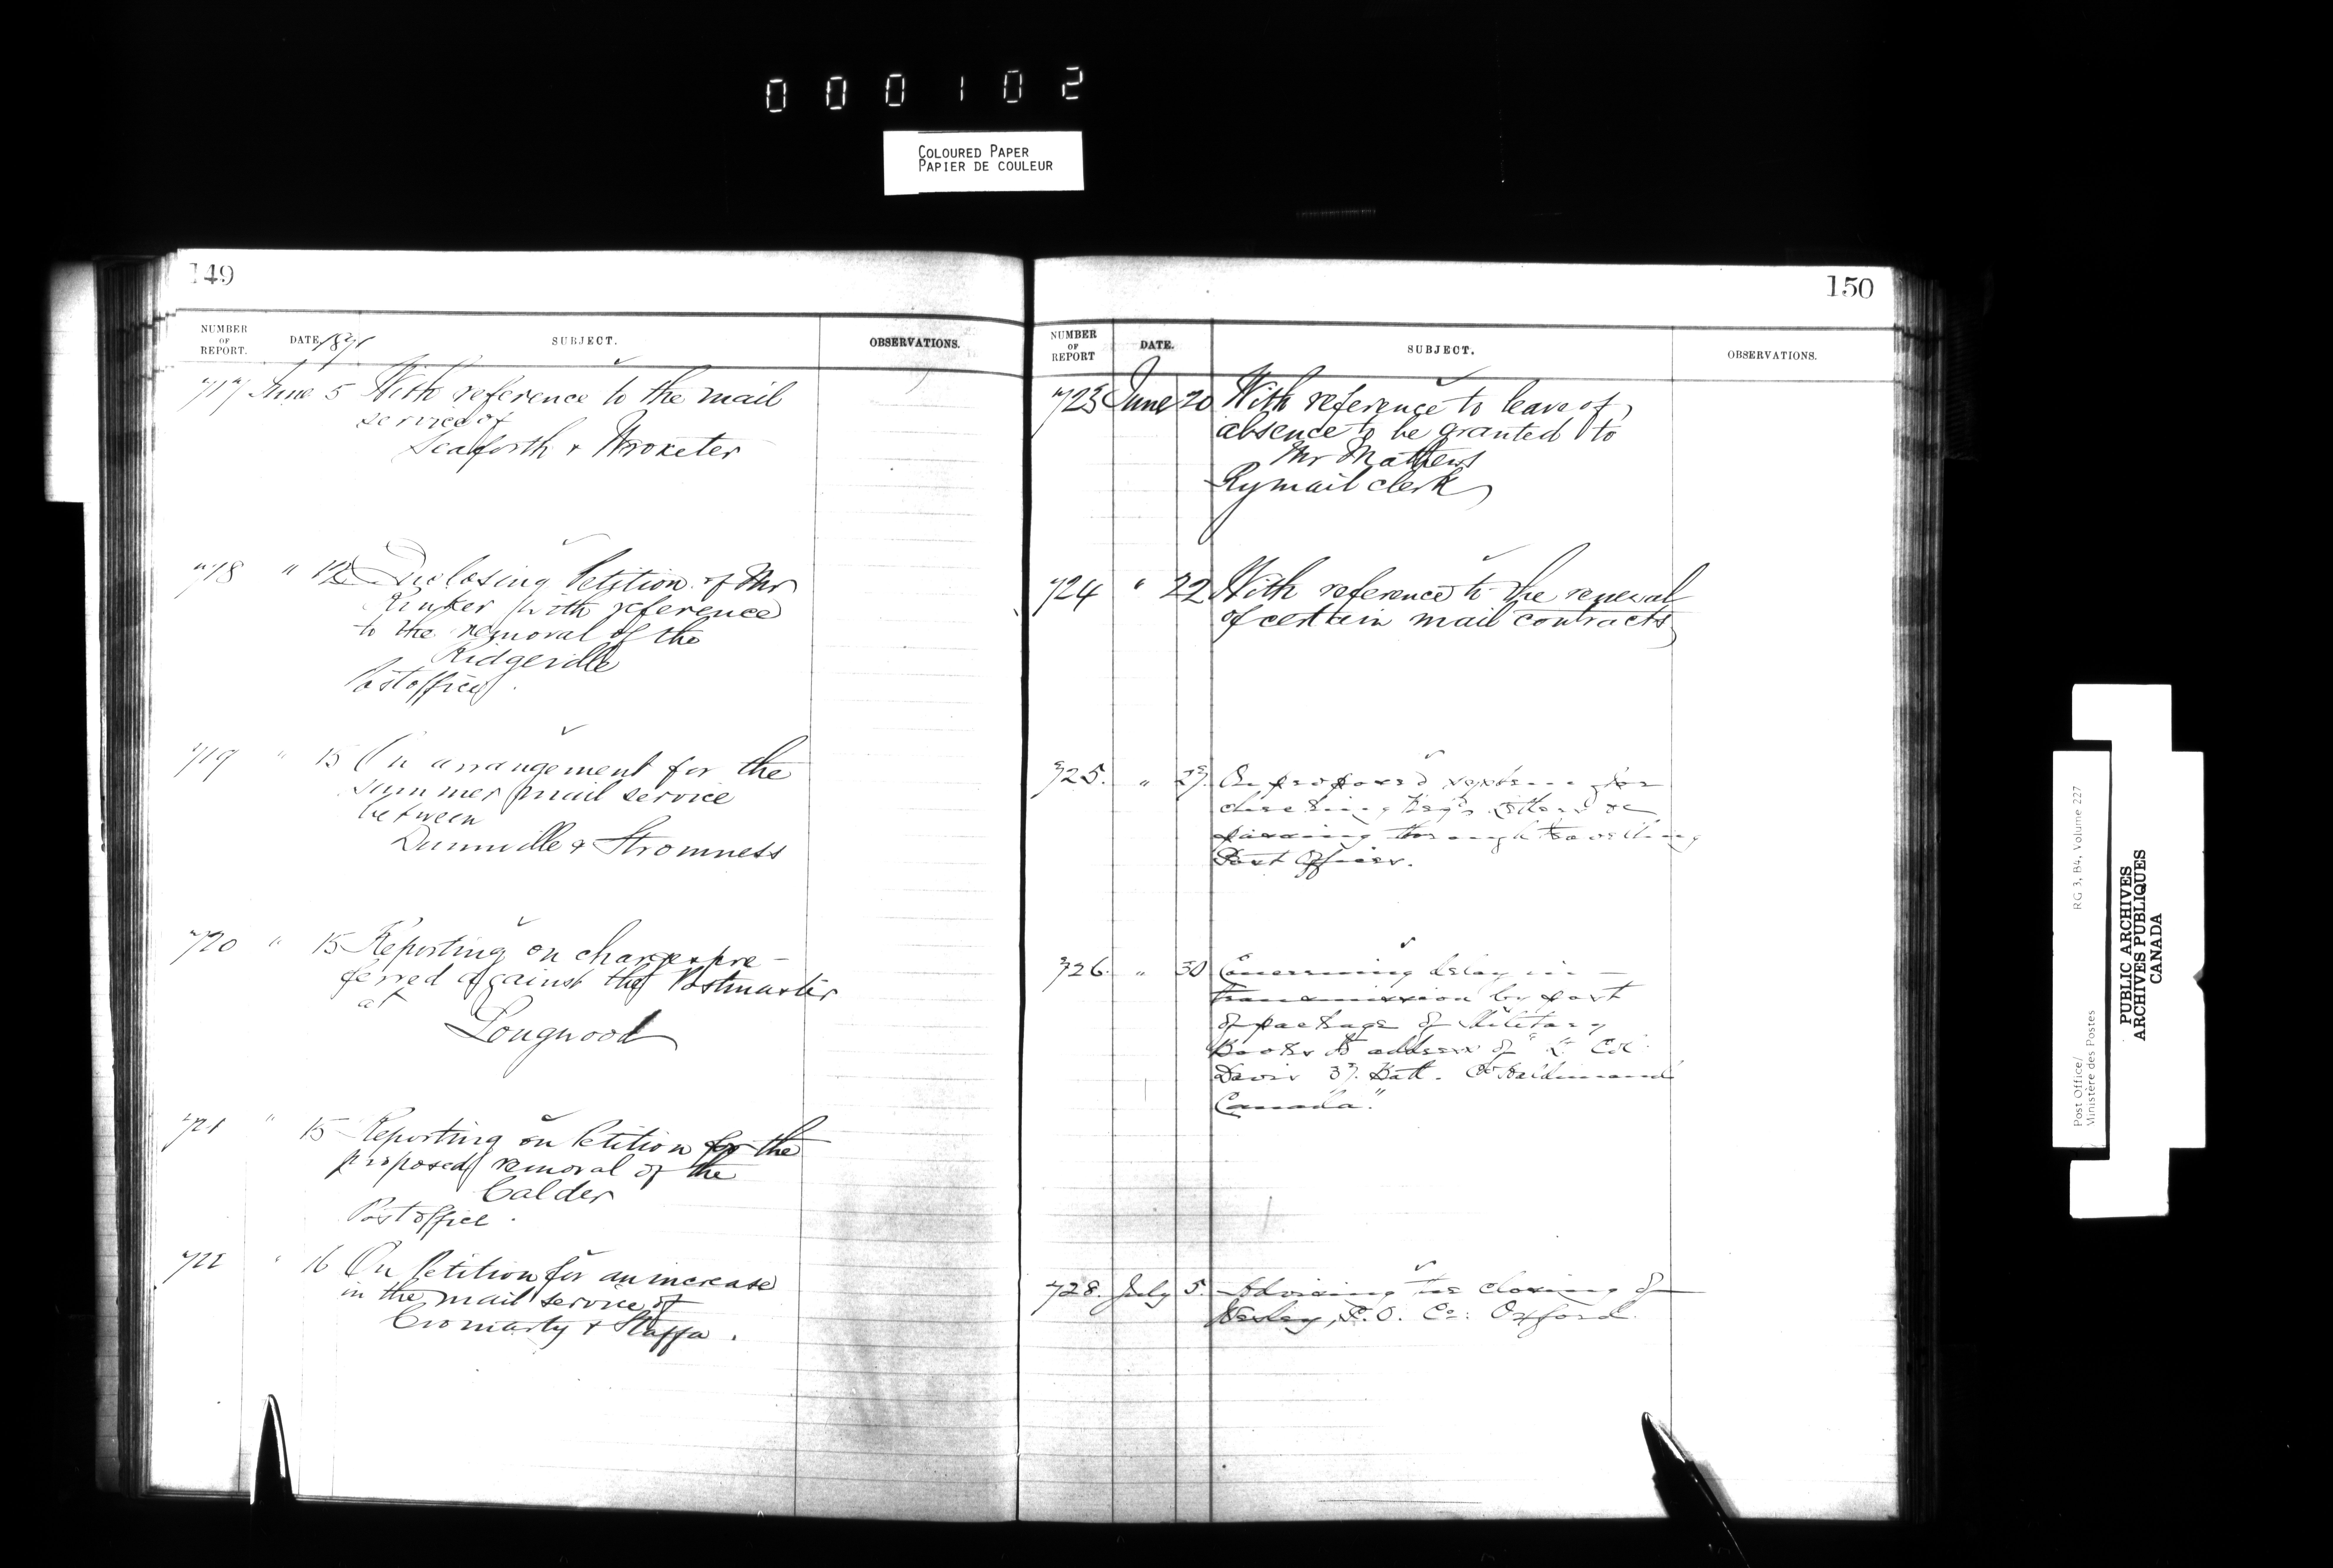 000102
COLOURED PAPER
PAPIER DE COULEUR
149
NUMBER OF REPORT. DATE 1871 SUBJECT. OBSERVATIONS.
717 June 5 With reference to the mail
service of
Seaforth & Wroxeter
718 " 12 Enclosing Petition of Mr
with reference
to the removal of the
Ridgeville
Postoffice
719 " 15 On arrangement for the
summer mail service
between
Dunnville & Stromness
720 " 15 Reporting on charges pre-
ferred against the Postmaster
at
Longwood
721 " 15 Reporting on Petition for the
proposed removal of the
Calder
Postoffice.
722 " 16 On Petition for an increase
in the mail service of
Cromarty & Staffa.
150
NUMBER OF REPORT DATE. SUBJECT. OBSERVATIONS.
723 June 20 With reference to leave of
absence to be granted to
Mr Mathews
Ry mail clerk
724 " 22 With reference to the renewal
of certain mail contracts
725. " 27. On proposed for
checking Reg'd letters &c
passing through travelling
Post Offices.
726. " 30 Concerning delay in
transmission by post
of package of Military
Books to address of "Lt Col
Davis 37. Batt. Co Haldimand
Canada."
728. July 5. Advising the closing of
P.O. Co: Oxford.
Post Office/
Ministère des Postes
RG 3, B4, Volume 227
PUBLIC ARCHIVES
ARCHIVES PUBLIQUES
CANADA